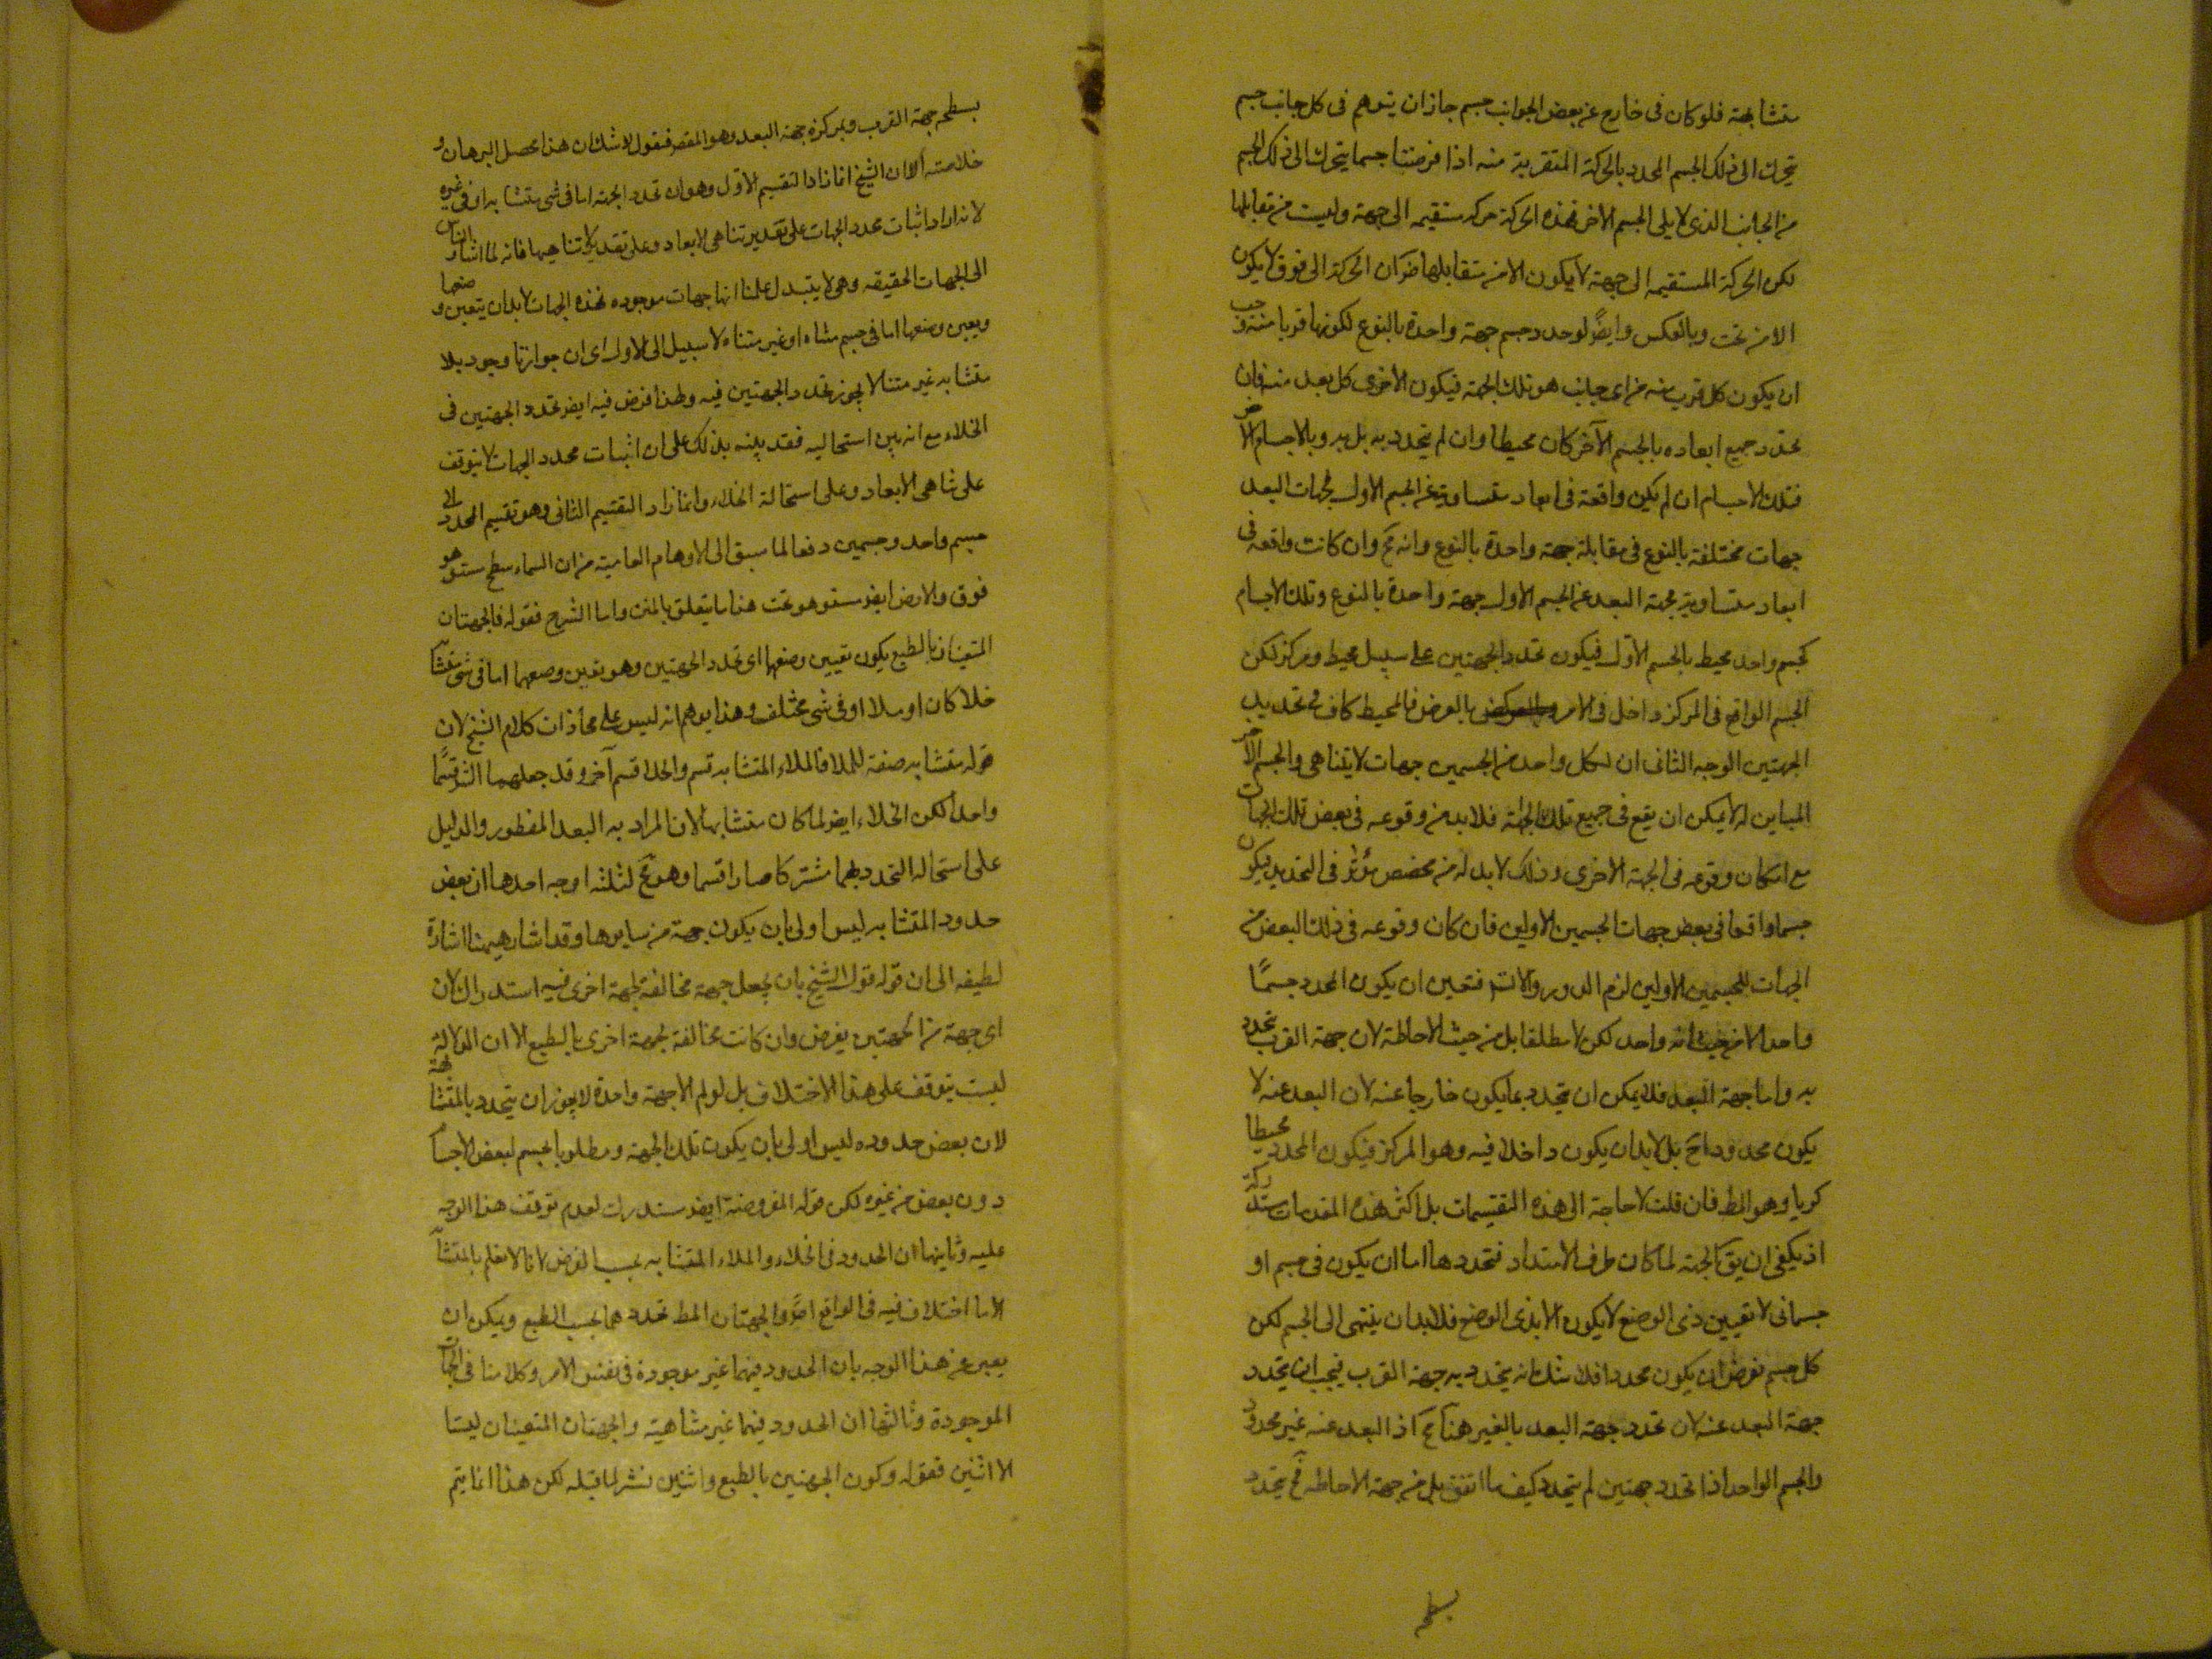 متشابهة فلو كان فى خارج عن بعض الجوانب جسم جاز ان يتوهم فى كل جانب جسم
يتحرك الى ذلك الجسم المحدد بالحركة المتقربة منه اذا فرضنا جسما يتحرك الى ذلك الجسم
من الجانب الذى لا يلى الجسم الاخر فهذه الحركة حركه مستقيمه الى جهة وليست من مقابلها
لكن الحركة المستقيمه الى جهة لا يكون الا من مقابلها ضرورة ان الحركة الى فوق لا يكون
الا من تحت وبالعكس وايضً لو حدد جسم جهة واحدة بالنوع لكونها قربا منه وجب
ان يكون كل قرب منه من اى جانب هو تلك الجهة فيكون الاخرى كل بعد منه فان
تحدد جميع ابعاده بالجسم الآخر كان محيطا وان لم يتحدد به بل به وبالاجسام الاخر
فتلك الاجسام ان لم يكن واقعة فى ابعاد متساوية عن الجسم الاول فجهات البعد
جهات مختلفة بالنوع فى مقابلة جهة واحدة بالنوع وانه مح وان كانت واقعه فى
ابعاد متساوية فجهة البعد عن الجسم الاول جهة واحدة بالنوع وتلك الاجسام
كجسم واحد محيط بالجسم الاول فيكون تحدد الجهتين على سبيل محيط ومركز لكن
الجسم الواقع فى المركز داخل فى الامر بالعرض فالمحيط كاف فى تحديد
الجهتين الوجه الثانى ان لكل واحد من الجسمين جهات لا يتناهى والجسم الاخر
المباين له لا يمكن ان يقع فى جميع تلك الجهات فلا بد من وقوعه فى بعض تلك الجهات
مع امكان وقوعه فى الجهة الاخرى وذلك لا بد له من مخصص مؤثر فى التحديد فيكون
جسما واقعا فى بعض جهات الجسمين الاولين فان كان وقوعه فى ذلك البعض من
الجهات للجسمين الاولين لزم الدور والا تس فتعين ان يكون المحدد جسمًا
واحدا لا من حيث انه واحد لكن لا مطلقا بل من حيث الاحاطة لان جهة القرب يتحدد
به واما جهة البعد فلا يمكن ان يتحدد بما يكون خارجا عنه لان البعد عنه لا
يكون محدودا ح بل لا بد ان يكون داخلا فيه وهو المركز فيكون المحدد محيطا
كريا وهو المط فان قلت لا حاجة الى هذه التقسيمات بل اكثر هذه المقدمات مستدركة
اذ يكفى ان يق الجهة لما كان طرف الامتداد فتحددها اما ان يكون فى جسم او
جسمانى لا تعيين ذى الوضع لا يكون الا بذى الوضع فلا بد ان ينتهى الى الجسم لكن
كل جسم نفرض ان يكون محددا فلا شك انه يتحدد به جهة القرب فيجب ان يتحدد
جهة البعد عنه لان تحدد جهة البعد بالغير هناك مح اذ البعد عنه غير محدود
والجسم الواحد اذا تحدد جهتين لم يتحدد كيف ما اتفق بل من جهة الاحاطه فح يتحدد
بسطحه
بسطحه جهة القرب وبمركزه جهة البعد وهو المقصر فنقول لا شك ان هذا محصل البرهان و
خلاصته الا ان الشيخ انما زاد التقسيم الاول وهو ان تحدد الجهة اما فى شى متشابه او فى غيره
لانه اراد اثبات محدد الجهات على تقدير تناهى الابعاد وعلى تقدير لا تناهيها فانه لما اشار الناس
الى الجهات الحقيقه وهى لا يتبدل علمنا انها جهات موجوده فهذه الجهات لا بد ان يتعين وضعها
ويعين وضعها اما فى جسم متناه او غير متناه لا سبيل الى الاول اى ان جوازنا وجود بلا
متشابه غير متناه لا يجوز تحدد الجهتين فيه ولهذا فرض فيه ايضر تحدد الجهتين فى
الخلاء مع انه بين استحاليه فقد بينه بذلك على ان اثبات محدد الجهات لا يتوقف
على تناهى الابعاد وعلى استحالة الخلاء وانما زاد التقسيم الثانى وهو تقسيم المحدد الى
جسم واحد وجسمين دفعا لما سبق الى الاوهام العامية من ان السماء سطح مستو هو
فوق والارض ايضر مستو هو تحت هذا ما يتعلق بالمتن واما الشرح فقوله فالجهتان
المتعينتان بالطبع يكون تعيين وضعهما اى تحدد الجهتين وهو تعين وضعهما اما فى شى متشابه
خلا كان او ملا او فى شى مختلف وهذا يوهم انه ليس على محاذات كلام الشيخ لان
قوله متشابه صفة للملا فالملاء المتشابه قسم والخلا قسم آخر وقد جعلهما الشر قسمًا
واحدا لكن الخلاء ايضر لما كان متشابها لان المراد به البعد المفطور والدليل
على استحاله التحدد بهما مشتركا صارا قسما وهو مح لثلثه اوجه احدها ان بعض
حدود المتشابه ليس اولى بان يكون جهة من سايرها وقد اشار هيهنا اشارة
لطيفه الى ان قوله قول الشيخ بان يجعل جهة مخالفة لجهة اخرى فيه استدراك لان
اى جهة من الجهتين يفرض وان كانت مخالفة لجهة اخرى بالطبع الا ان الدلالة
ليست يتوقف على هذا الاختلاف بل لو لم الا جهة واحدة لا يجوز ان يتحدد بالمتشابهة
لان بعض حدوده ليس اولى بان يكون تلك الجهة ومطلوبا لجسم لبعض الاجسام
دون بعض من غيره لكن قوله المفروضة ايضر مستدرك لعدم توقف هذا الوجه
عليه وثانيها ان الحدود فى الخلاء والملاء المتشابه بحسب الفرض لانا لا نعلم بالمتشابه
الا ما اختلاف فيه فى الواقع اصً والجهتان المط تحددهما بحسب الطبع ويمكن ان
يعبر عن هذا الوجه بان الحدود فيهما غير موجودة فى نفس الامر وكلامنا فى الجهات
الموجودة وثالثها ان الحدود فيهما غير متناهية والجهتان المتعينتان ليستا
الا اثنين فقوله وكون الجهتين بالطبع واثنين نشر لما قبله لكن هذا انما يتم